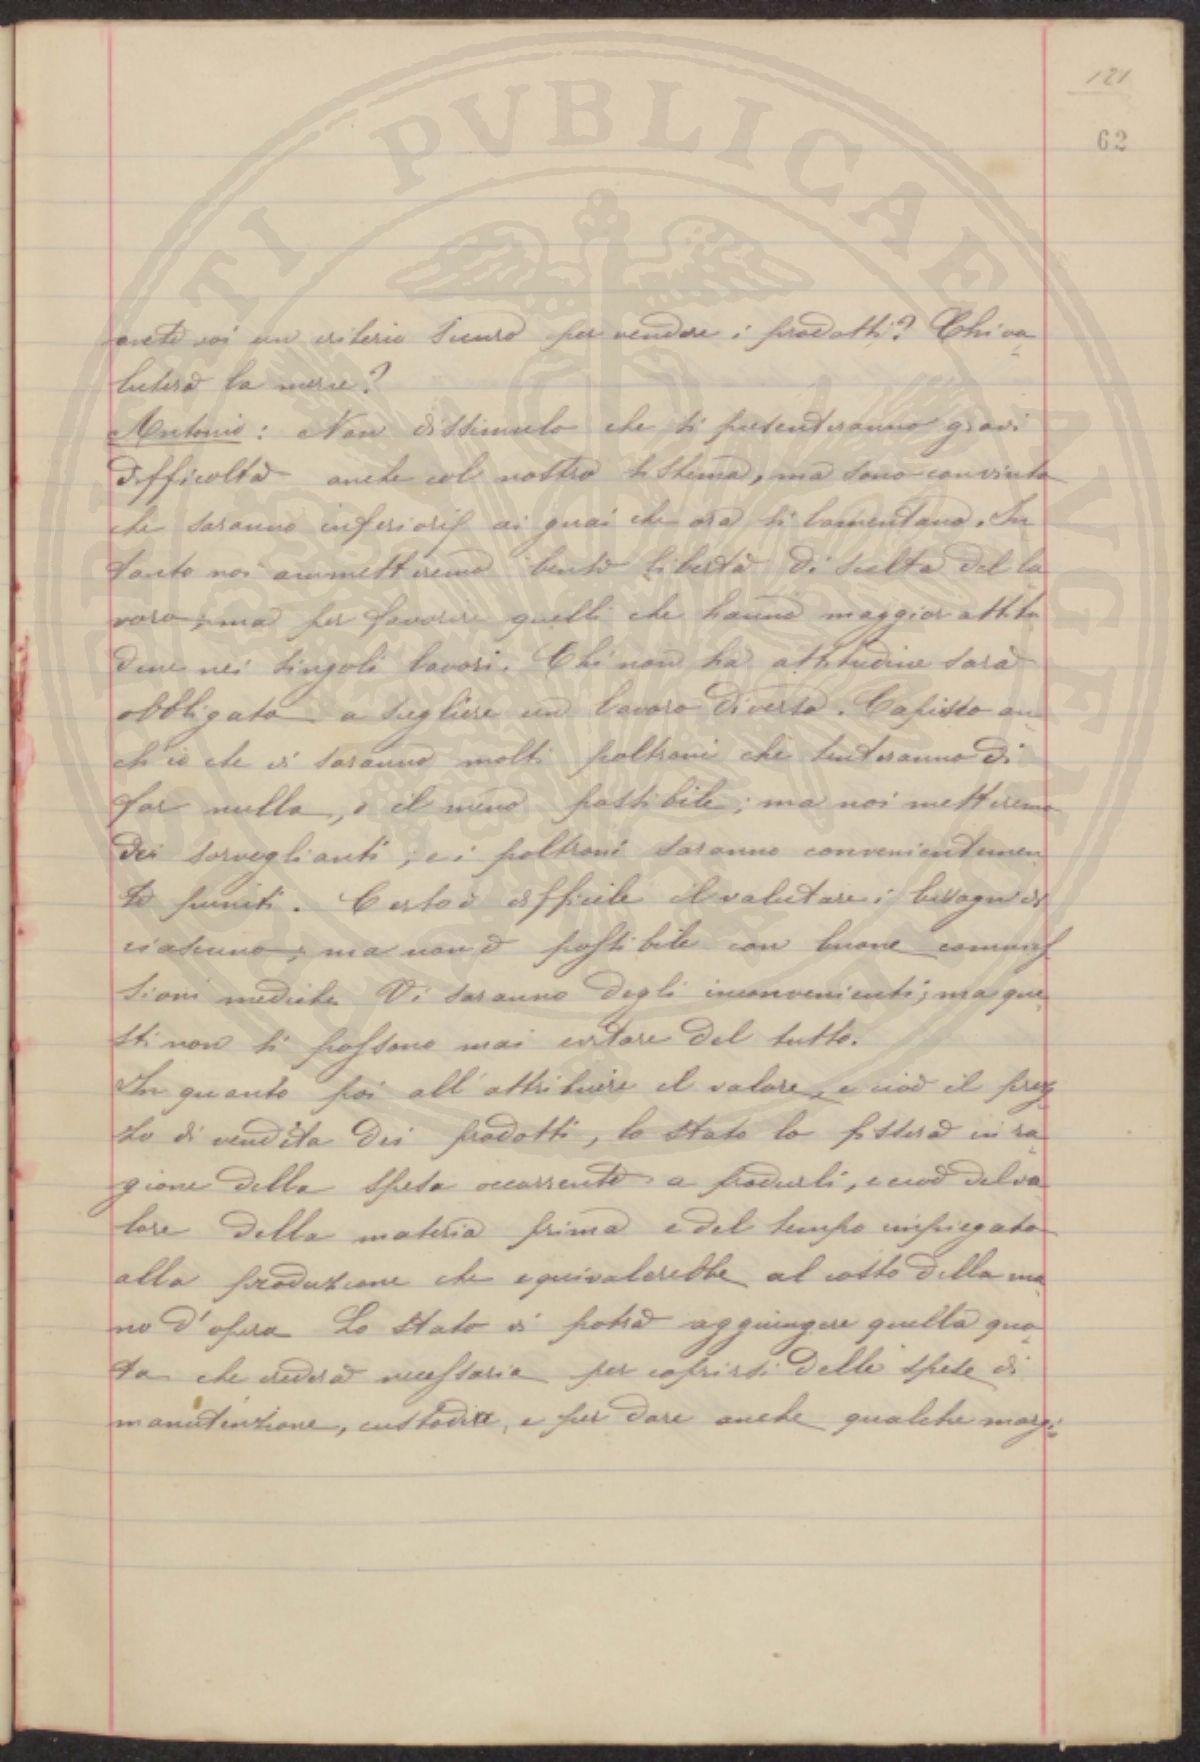 121
62
avete voi un criterio sicuro per vendere i prodotti? Chi va
luterà la merce?
Antonio: Non dissimulo che si presenteranno gravi
difficoltà anche col nostro sistema, ma sono convinto
che saranno inferiori ai guai che ora si lamentano. In
tanto noi ammetteremo bensì libertà di scelta del la
voro, ma per favorire quelli che hanno maggior attitu
dine nei singoli lavori. Chi non ha attitudine sarà
obbligato a scegliere un lavoro diverso. Capisco an
ch'io che vi saranno molti poltroni che tenteranno di
far nulla, o il meno possibile; ma noi metteremo
dei sorveglianti; e i poltroni saranno convenientemen
te puniti. Certo è difficile il valutare i bisogni di
ciascuno; ma non è possibile con buone commis
sioni mediche. Vi saranno degli inconvenienti; ma que
sti non si possono mai evitare del tutto.
In quanto poi all'attribuire il valore, e cioè il prez
zo di vendita dei prodotti, lo stato lo fisserà in ra
gione della spesa occorrente a produrli, e cioè del va
lore della materia prima e del tempo impiegato
alla produzione che equivalerebbe al costo della ma
no d'opera. Lo stato vi potrà aggiungere quella quo
ta che crederà necessaria per coprirsi delle spese di
manutenzione, custodia, e per dare anche qualche margi=
PVBLICAE